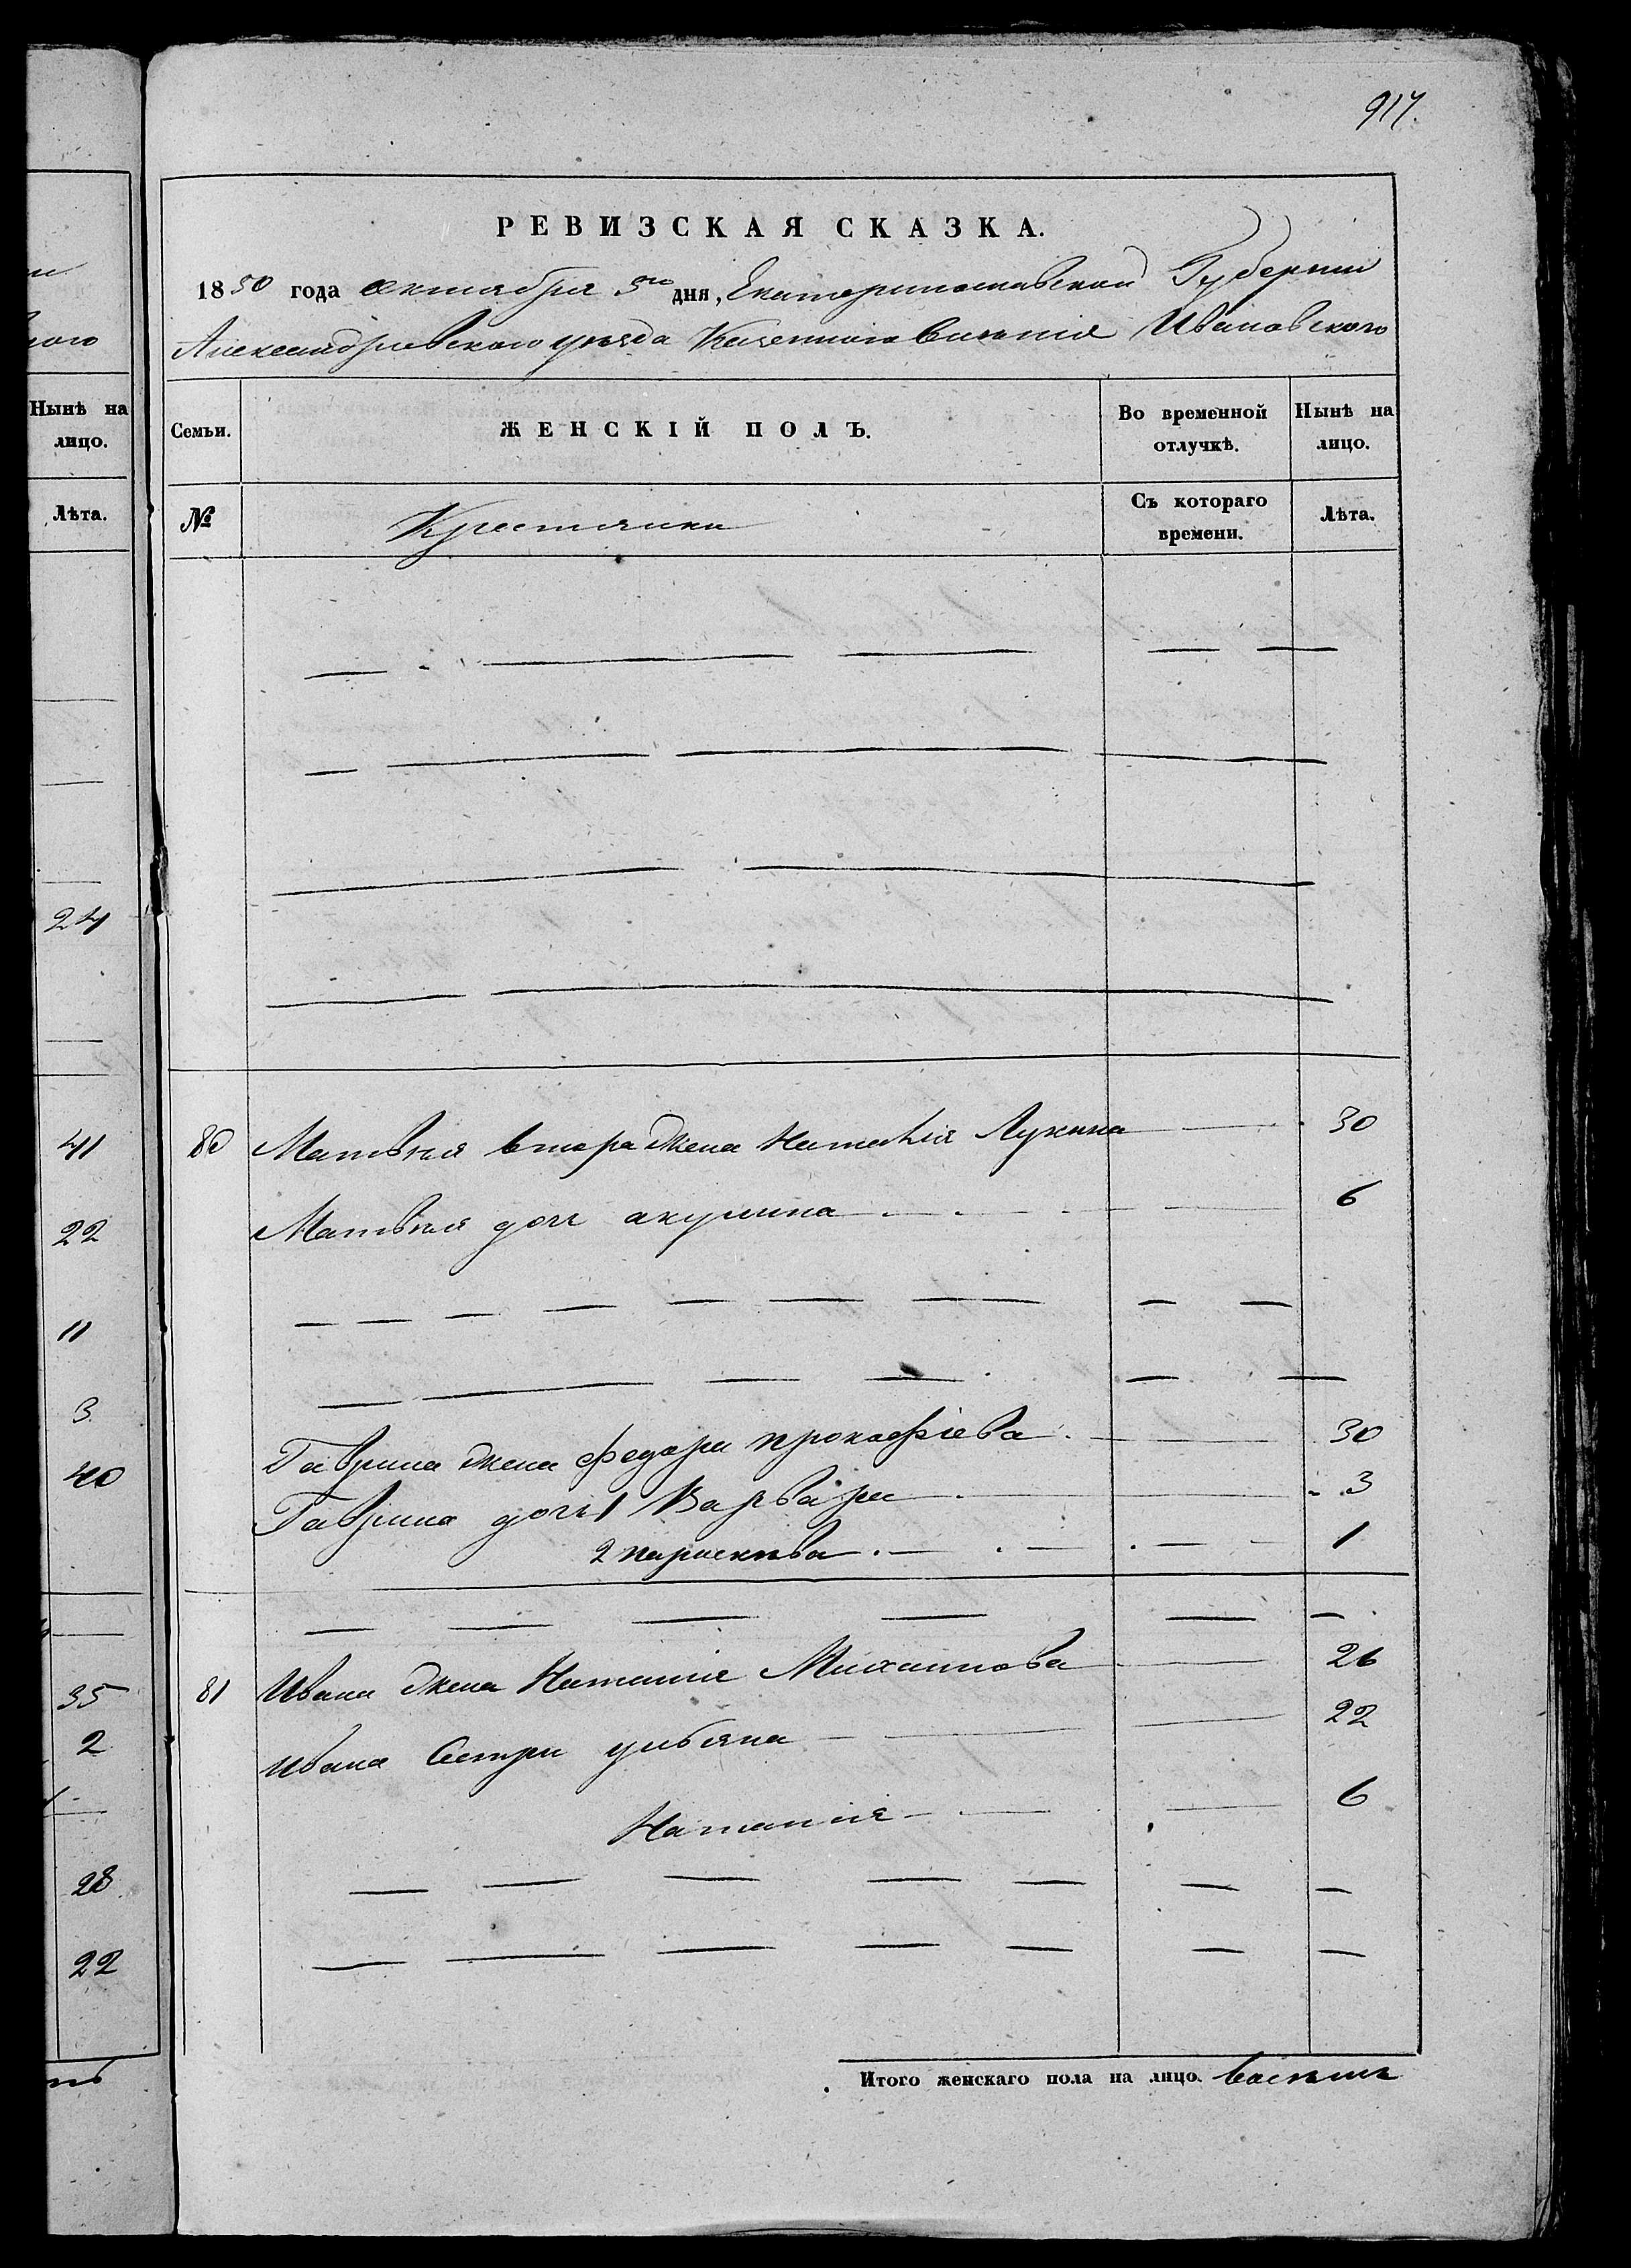 917.
РЕВИЗСКАЯ СКАЗКА.
1850 года октября 5го дня, Екатеринославской Губернии
Александровского уезда Казенного Селения Ивановского
Семьи. ЖЕНСКІЙ ПОЛЪ. Во временной отлучкѣ. Нынѣ на лицо.
№ Крестянки Съ котораго времени. Лѣта.
80 Матвѣя втора жена Наталія Лукина 30
Матвѣя доч акулина 6
Гаврила жена федора прокофіева 30
Гаврила дочь 1 Варвара 3
2 параскѣва 1
81 Ивана жена Наталия Михаилова 26
Ивана Сестри улияна 22
Наталия 6
Итого женскаго пола на лицо. восѣмь
Нынѣ на лицо.
Лѣта.
24
41
22
11
3
40
35
2
28
22